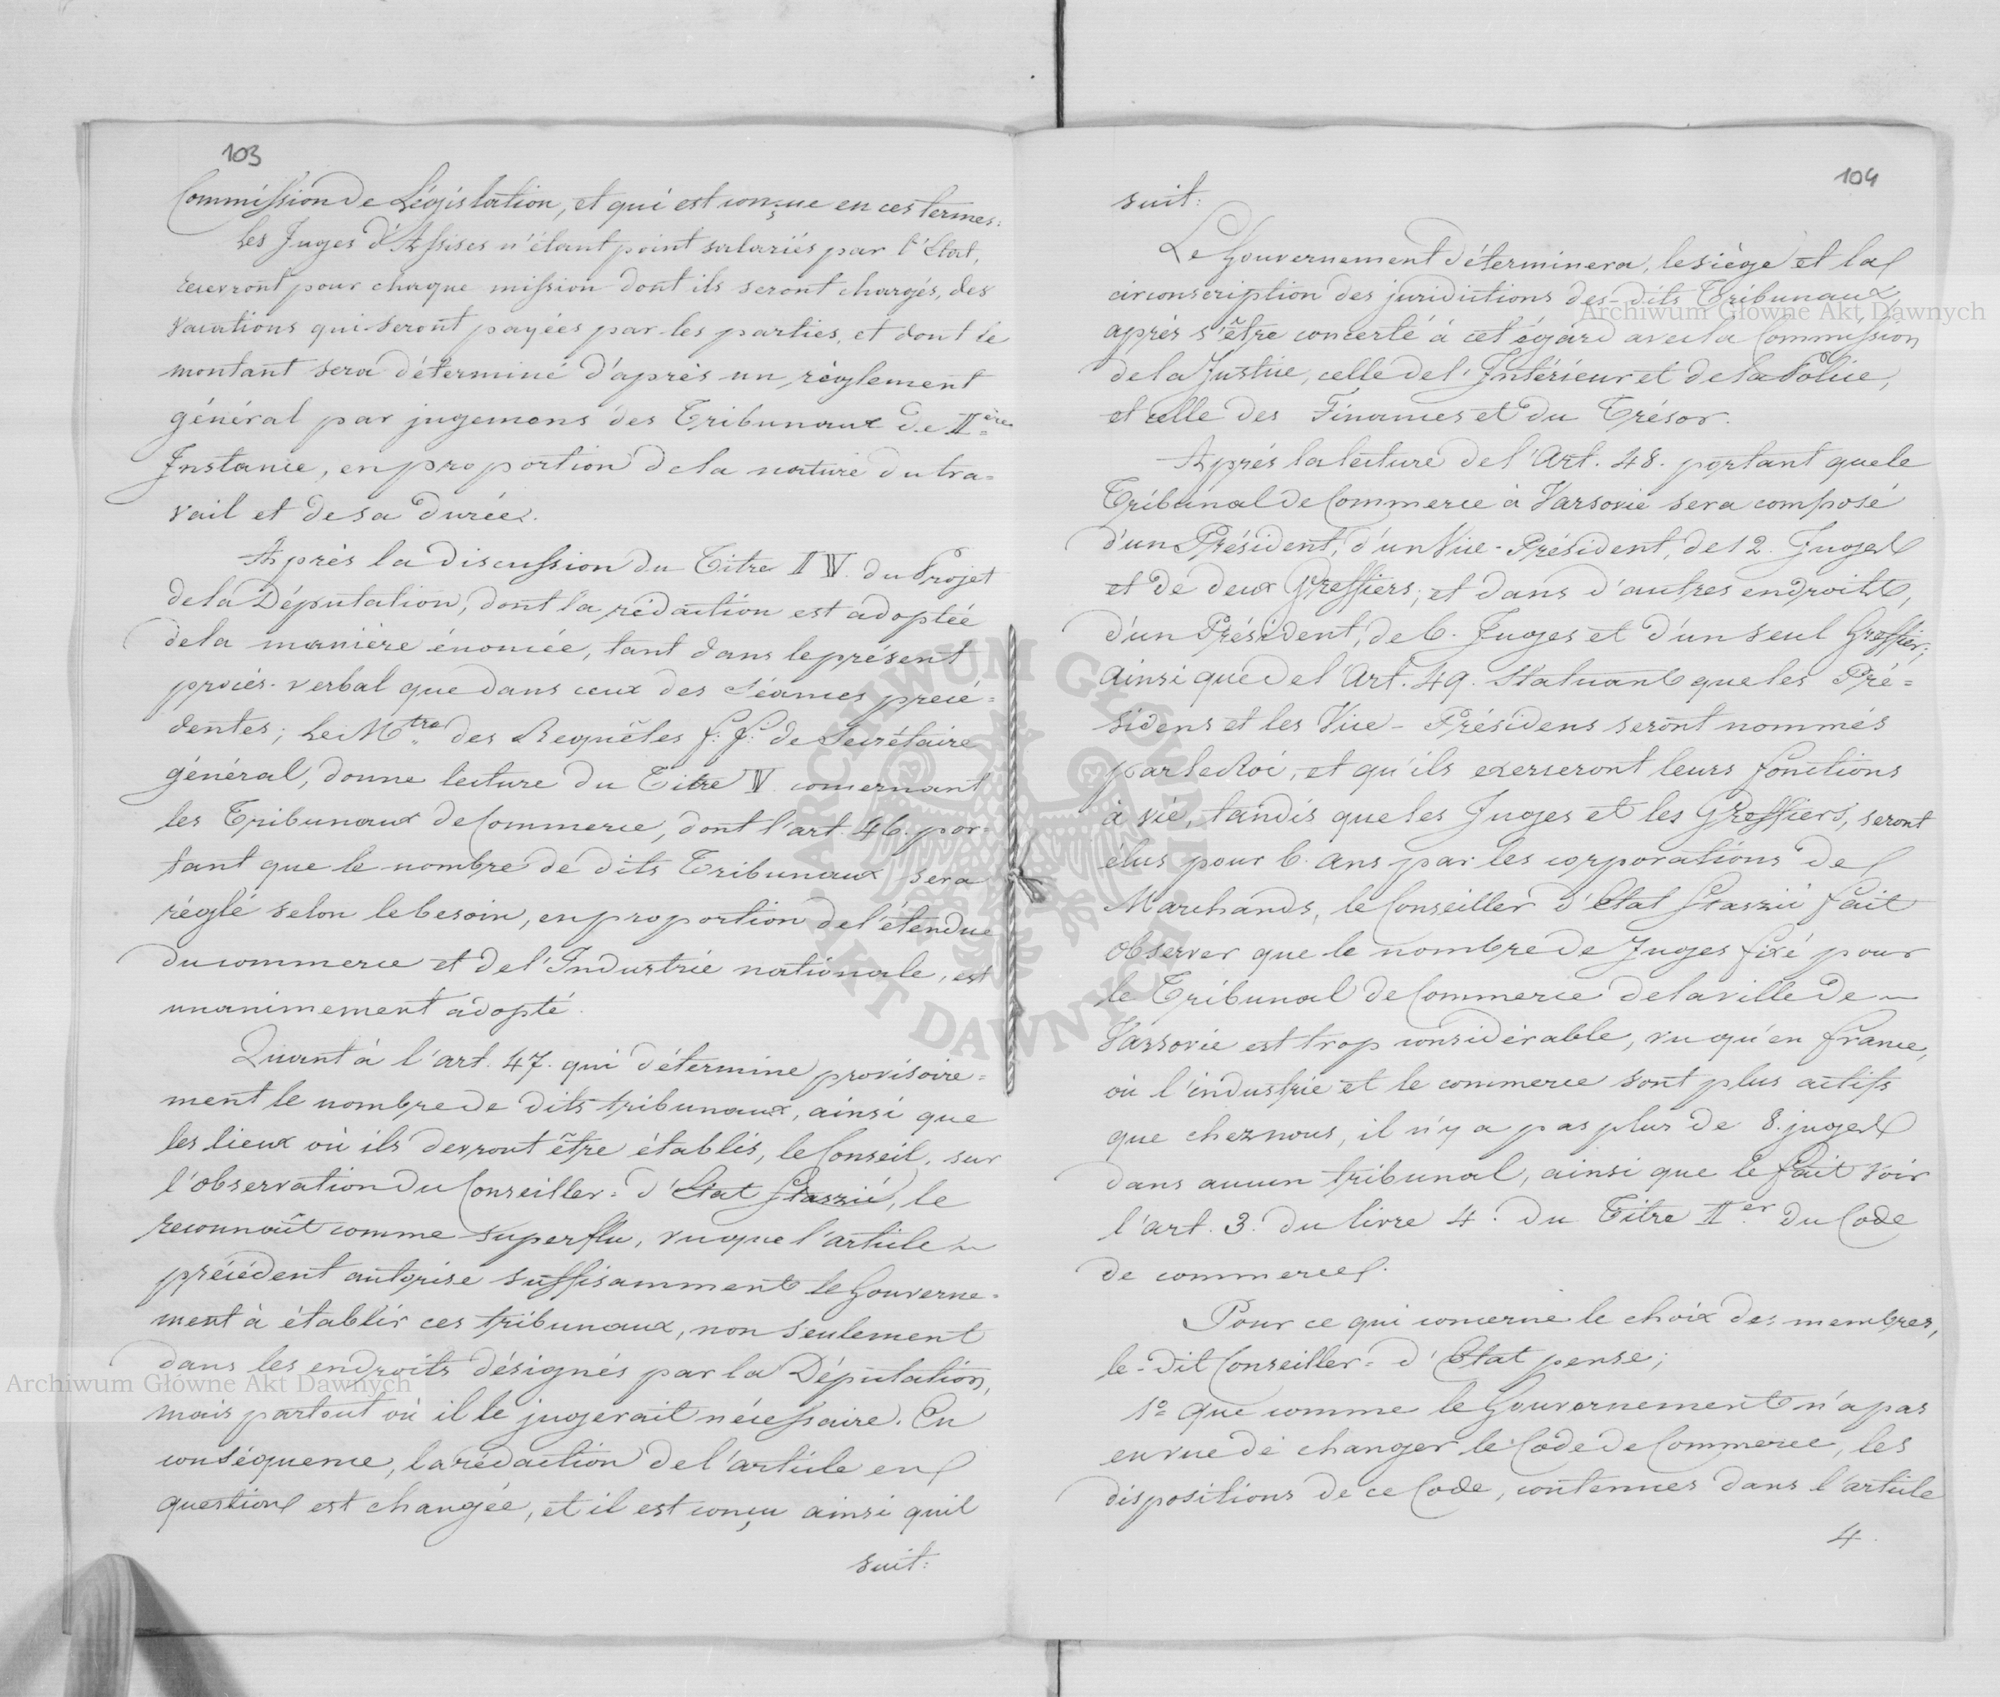 103
Commission de Législation, et qui est conçue en ces termes:
Les Juges d'Assises n'étant point salariés par l'Etat,
recevront pour chaque mission dont ils seront chargés, des
vacations qui seront payées par les parties, et dont le
montant sera déterminé d'après un règlement
général par jugemens des Tribunaux de II=ère
Instance, en proportion de la nature du tra=
vail et de sa durée.
Après la discussion du Titre IV. du Projet
de la Députation, dont la rédaction est adoptée
de la manière énoncée, tant dans le présent
procès-verbal que dans ceux des Séances précé=
dentes; Le Mtre des Requêtes f: f: de Secrétaire
général, donne lecture du Titre V. concernant
les Tribunaux de Commerce, dont l'art. 46. por=
tant que le nombre de dits Tribunaux sera
réglé selon le besoin, en proportion de l'étendue
du commerce et de l'Industrie nationale, est
unanimement adopté.
Quant à l'art. 47. qui détermine provisoire=
ment le nombre de dits tribunaux, ainsi que
les lieux où ils devront être établis, le Conseil, sur
l'observation du Conseiller = d'Etat Staszić, le
reconnaît comme superflu, vu que l'article
précédent autorise suffisamment le Gouverne=
ment à établir ces tribunaux, non seulement
dans les endroits désignés par la Députation,
mais partout où il le jugerait nécessaire. En
conséquence, la rédaction de l'article en
question est changée, et il est conçu ainsi qu'il
suit:
104
suit:
Le Gouvernement déterminera, le siège et la
circonscription des juridictions des-dits Tribunaux,
après s'être concerté à cet égard avec la Commission
de la Justice, celle de l'Intérieur et de la Police,
et celle des Finances et du Trésor.
Après la lecture de l'Art. 48. portant que le
Tribunal de Commerce à Varsovie sera composé
d'un Président, d'un Vice-Président, de 12. Juges
et de deux Greffiers; et dans d'autres endroits,
d'un Président, de 6. Juges et d'un seul Greffier;
ainsi que de l'Art. 49. statuant que les Pré=
sidens et les Vice-Présidens seront nommés
par le Roi, et qu'ils exerseront leurs fonctions
à vie, tandis que les Juges et les Greffiers, seront
élus pour 6. ans par les corporations de
Marchands, le Conseiller d'Etat Staszić fait
observer que le nombre de Juges fixé pour
le Tribunal de Commerce de la ville de
Varsovie est trop considérable, vu qu'en France,
où l'industrie et le commerce sont plus actifs
que chez nous, il n'y a pas plus de 8. juges
dans aucun tribunal, ainsi que le fait voir
l'art. 3. du livre 4. du Titre Ier du Code
de commerce.
Pour ce qui concerne le choix des membres,
le-dit Conseiller = d'Etat pense;
1º que comme le Gouvernement n'a pas
en vue de changer le Code de Commerce, les
dispositions de ce Code, contenues dans l'article
4.
Archiwum Główne Akt Dawnych
Archiwum Główne Akt Dawnych
ARCHIWUM GŁÓWNE AKT DAWNYCH